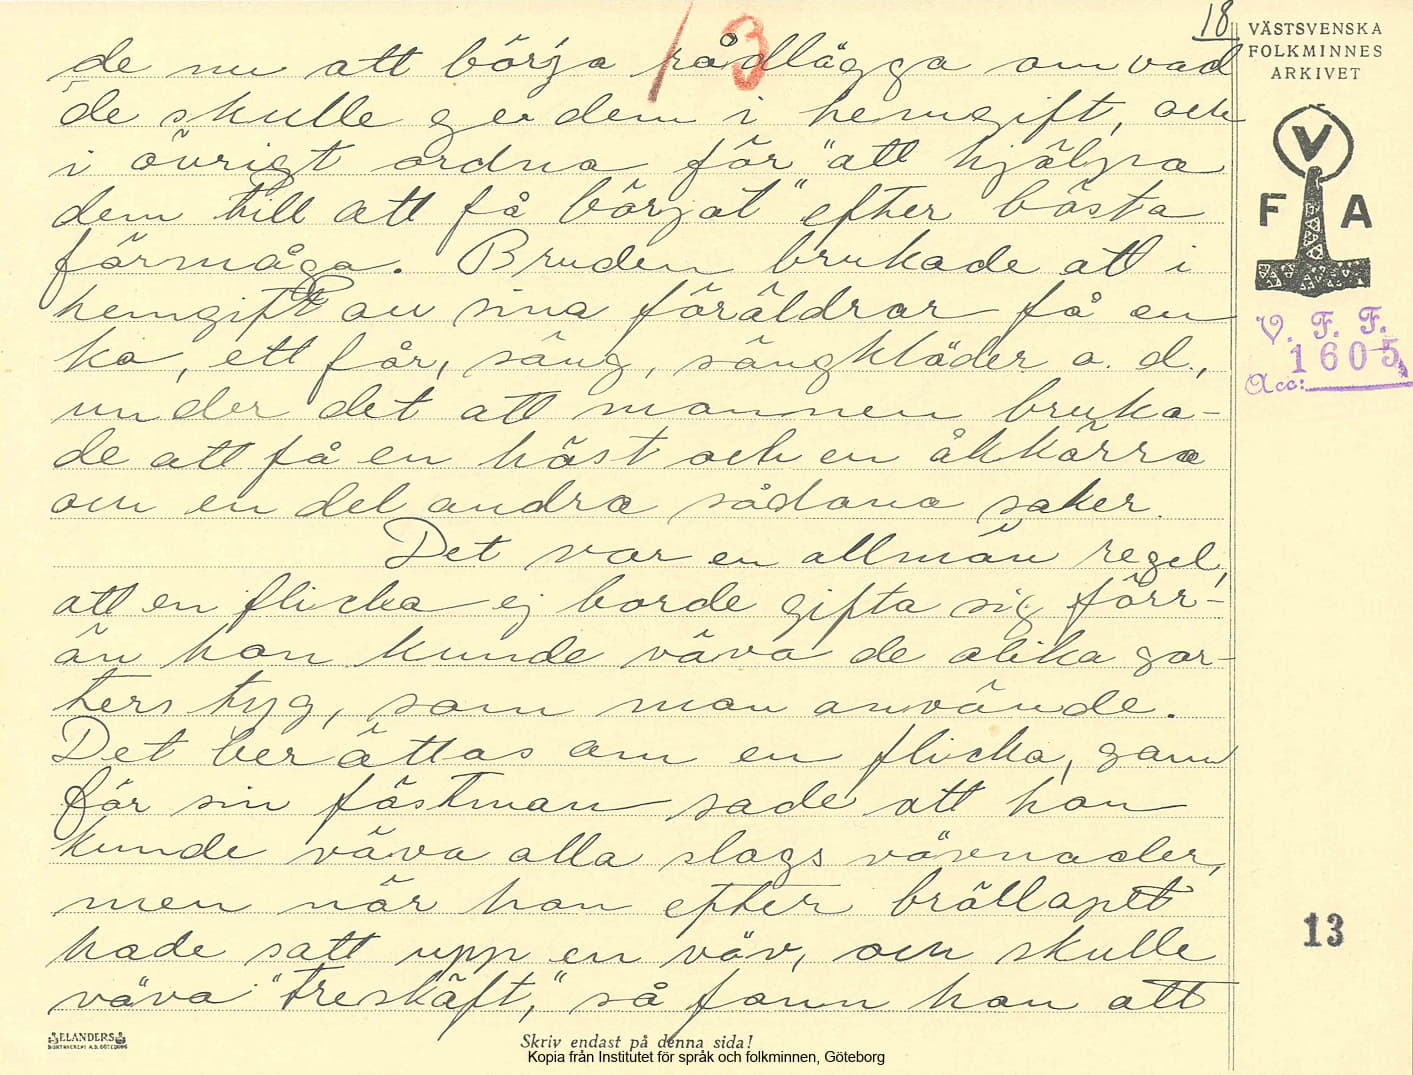 18
13
VÄSTSVENSKA
FOLKMINNES
ARKIVET
V
F A
V. F. F.
1605
Acc:
de nu att börja rådlägga om vad
de skulle ge dem i hemgift, och
i övrigt ordna för "att hjälpa
dem till att få börjat" efter bästa
förmåga. Bruden brukade att i
hemgift av sina föräldrar få en
ko, ett får, säng, sängkläder o. d.,
under det att mannen bruka-
de att få en häst och en åkkärra
om en del andra sådana saker.
Det var en allmän regel,
att en flicka ej borde gifta sig förr-
än hon kunde väva de olika sor-
ters tyg, som man använde.
Det berättas om en flicka, som
för sin fästman sade att hon
kunde väva alla slags vävnader,
men när hon efter bröllopet
hade satt upp en väv, och skulle
väva "treskäft," så fann hon att
13
ELANDERS
Skriv endast på denna sida!
Kopia från Institutet för språk och folkminnen, Göteborg